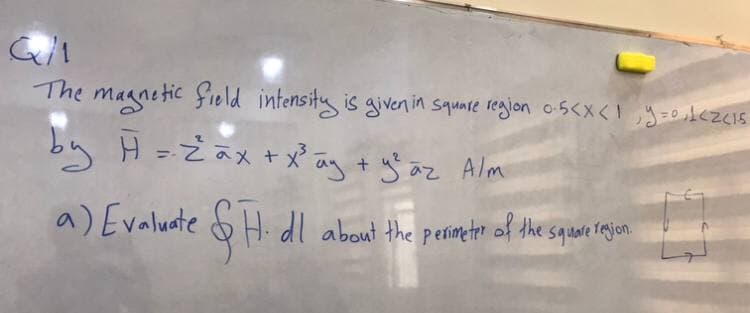 Q/1
The magnetic field intensity is given in square region 0.5<x<1 , y=0 , 1<z<1.5
by H̄ = z² āx + x³ āy + y² āz A/m
a) Evaluate ∮ H̄. dl about the perimeter of the square region.